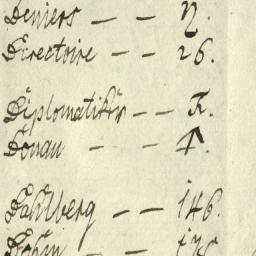 Deniers — — η.
Directoire — — 26.
Diplomatiker — — Fr.
Donau — — 4.
Dahlberg — — 146.